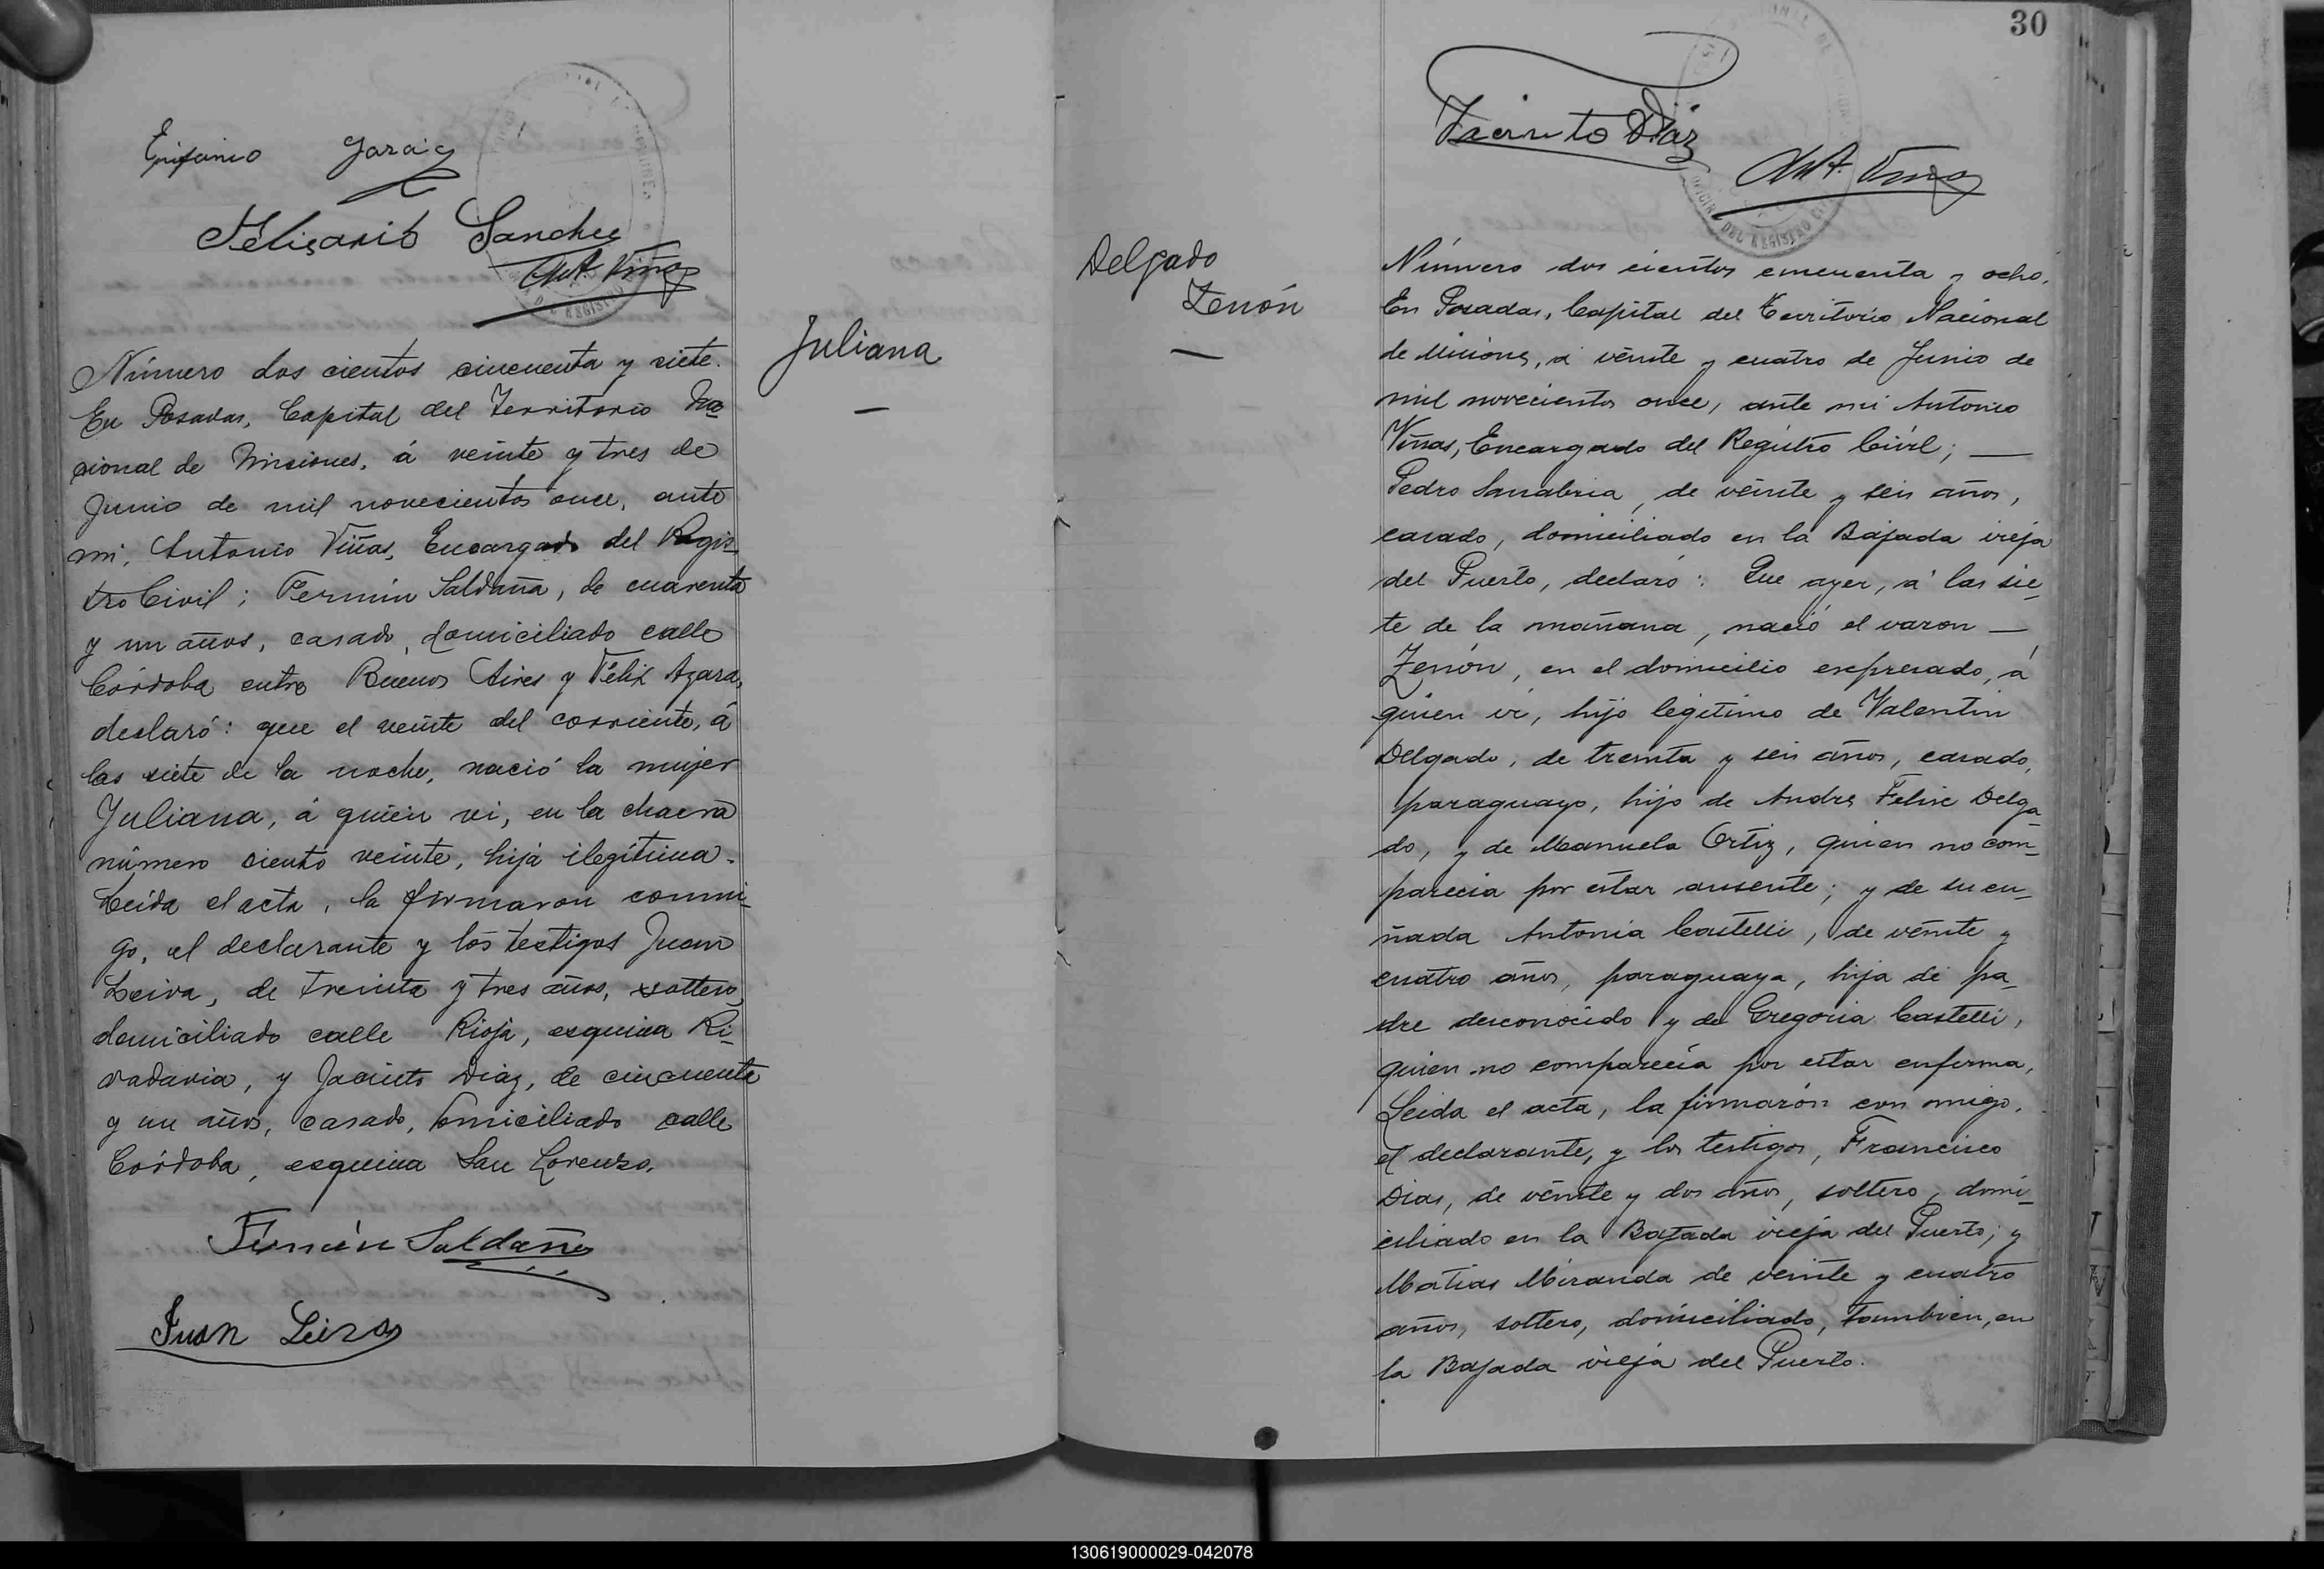 Epifanio Garay
Feliçario Sanchez
Ant. Viñas
Número dos cientos cincuenta y siete.
En Posadas, Capital del Territorio Na
cional de Misiones, á veinte y tres de
Junio de mil novecientos once, ante
mi, Antonio Viñas, Encargado del Regis-
tro Civil; Fermín Saldaña, de cuarenta
y un años, casado, domiciliado calle
Córdoba entre Buenos Aires y Félix Azara,
declaró: que el veinte del corriente, á
las siete de la noche, nació la mujer
Juliana, á quién vi, en la chacra
número ciento veinte, hija ilegítima.
Leída el acta, la firmaron conmi-
go, el declarante y los testigos Juan
Leiva, de treinta y tres años, soltero,
domiciliado calle Rioja, esquina Ri-
vadavia, y Jacinto Diaz, de cincuenta
y un años, casado, domiciliado calle
Córdoba, esquina San Lorenzo.
Fermín Saldaña
Juan Leiva
Juliana
30
Jacinto Díaz
Ant. Viñas
DEL REGISTRO CIVIL
Delgado
Zenón
Número dos cientos cincuenta y ocho.
En Posadas, Capital del Territorio Nacional
de Misiones, á veinte y cuatro de Junio de
mil novecientos once, ante mi Antonio
Viñas, Encargado del Registro Civil; —
Pedro Sanabria, de veinte y seis años,
casado, domiciliado en la Bajada vieja
del Puerto, declaró: Que ayer, á las sie-
te de la mañana, nació el varon —
Zenón, en el domicilio expresado, á
quien ví, hijo legítimo de Valentin
Delgado, de treinta y seis años, casado,
paraguayo, hijo de Andres Felix Delga
do, y de Manuela Ortiz, quien no com-
parecia por estar ausente; y de su cu-
ñada Antonia Castelli, de veinte y
cuatro años, paraguaya, hija de pa-
dre desconocido y de Gregoria Castelli,
quien no comparecía por estar enferma,
Leida el acta, la firmarón con migo,
el declarante, y los testigos, Francisco
Dias, de veinte y dos años, soltero, domi-
ciliado en la Bajada vieja del Puerto; y
Matias Miranda de veinte y cuatro
años, soltero, domiciliado, tambien, en
la Bajada vieja del Puerto.
130619000029-042078